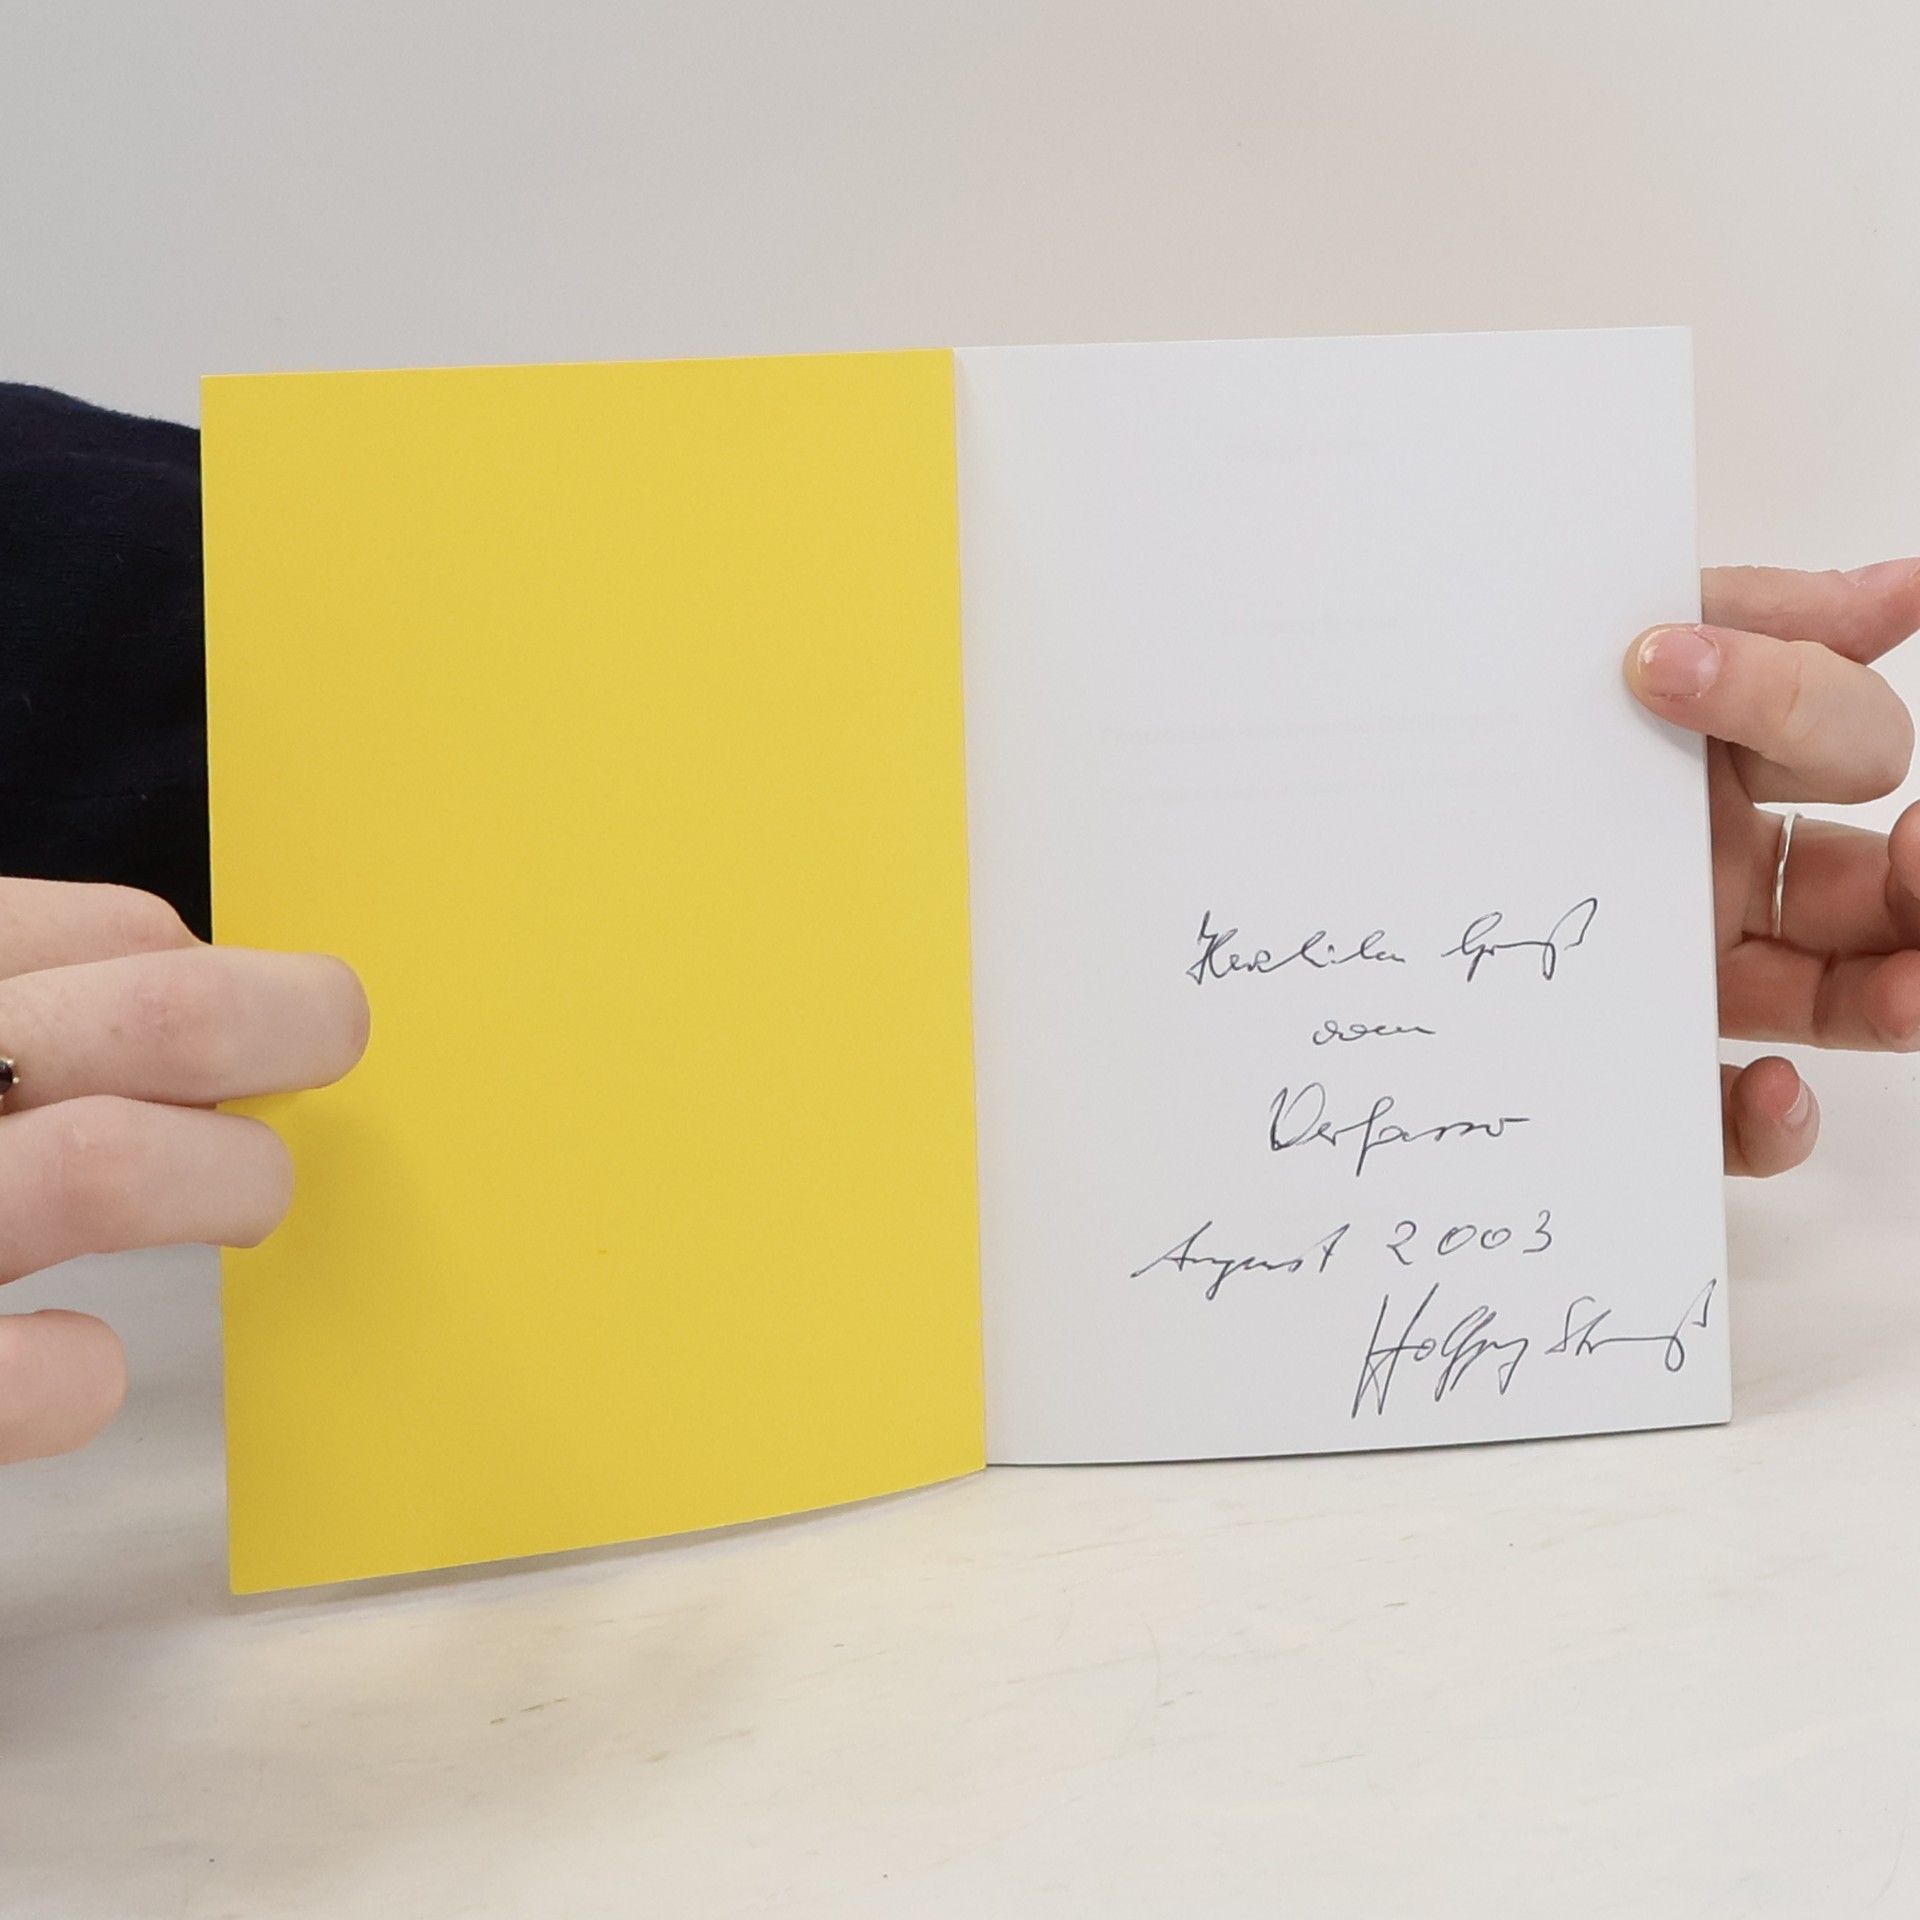 Herzlichen Gruß
vom
Verfasser
August 2003
Wolfgang Strauß